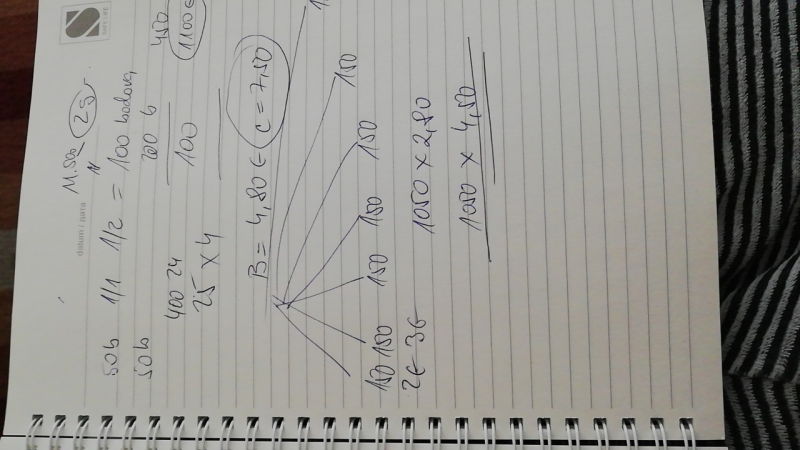 datum / nara
M. 500 25
50b 1/1 1/2 = 100 bodova
50b 200 b 450
1100 €
400 24 100
25 x 4
B = 4,80 € C = 7,50
150 150 150 150 150 150
2€ 3€ 1050 x 2,80
1050 x 4,50